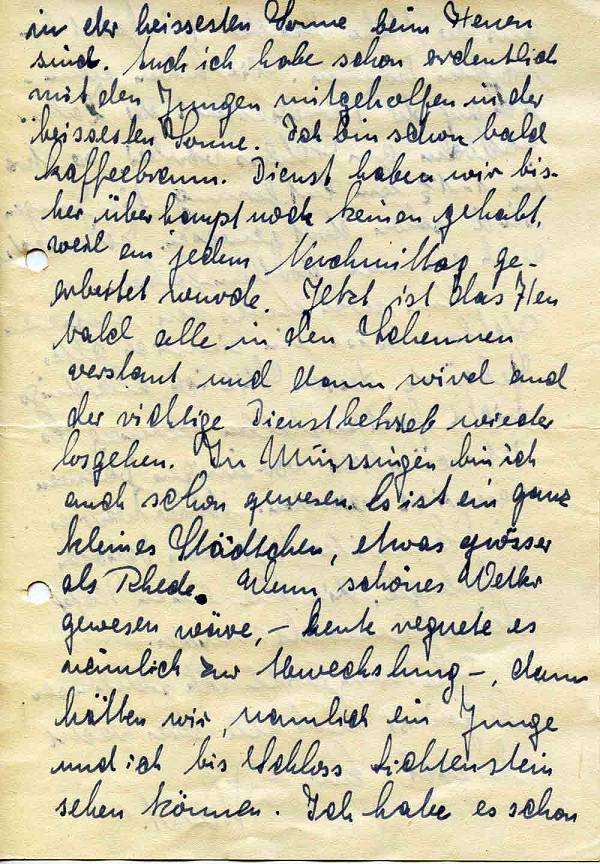 in der heissesten Sonne beim Heuen
sind. Auch ich habe schon ordentlich
mit den Jungen mitgeholfen in der
heissesten Sonne. Ich bin schon bald
kaffeebraun. Dienst haben wir bis-
her überhaupt noch keinen gehabt,
weil an jedem Nachmittag ge-
arbeitet wurde. Jetzt ist das Heu
bald alle in den Scheunen
verstaut und dann wird auch
der richtige Dienstbetrieb wieder
losgehen. In Münsingen bin ich
auch schon gewesen. Es ist ein ganz
kleines Städtchen, etwas grösser
als Rhede. Wenn schönes Wetter
gewesen wäre, – heute regnete es
nämlich zur Abwechslung –, dann
hätten wir, nämlich ein Junge
und ich bis Schloss Lichtenstein
sehen können. Ich habe es schon